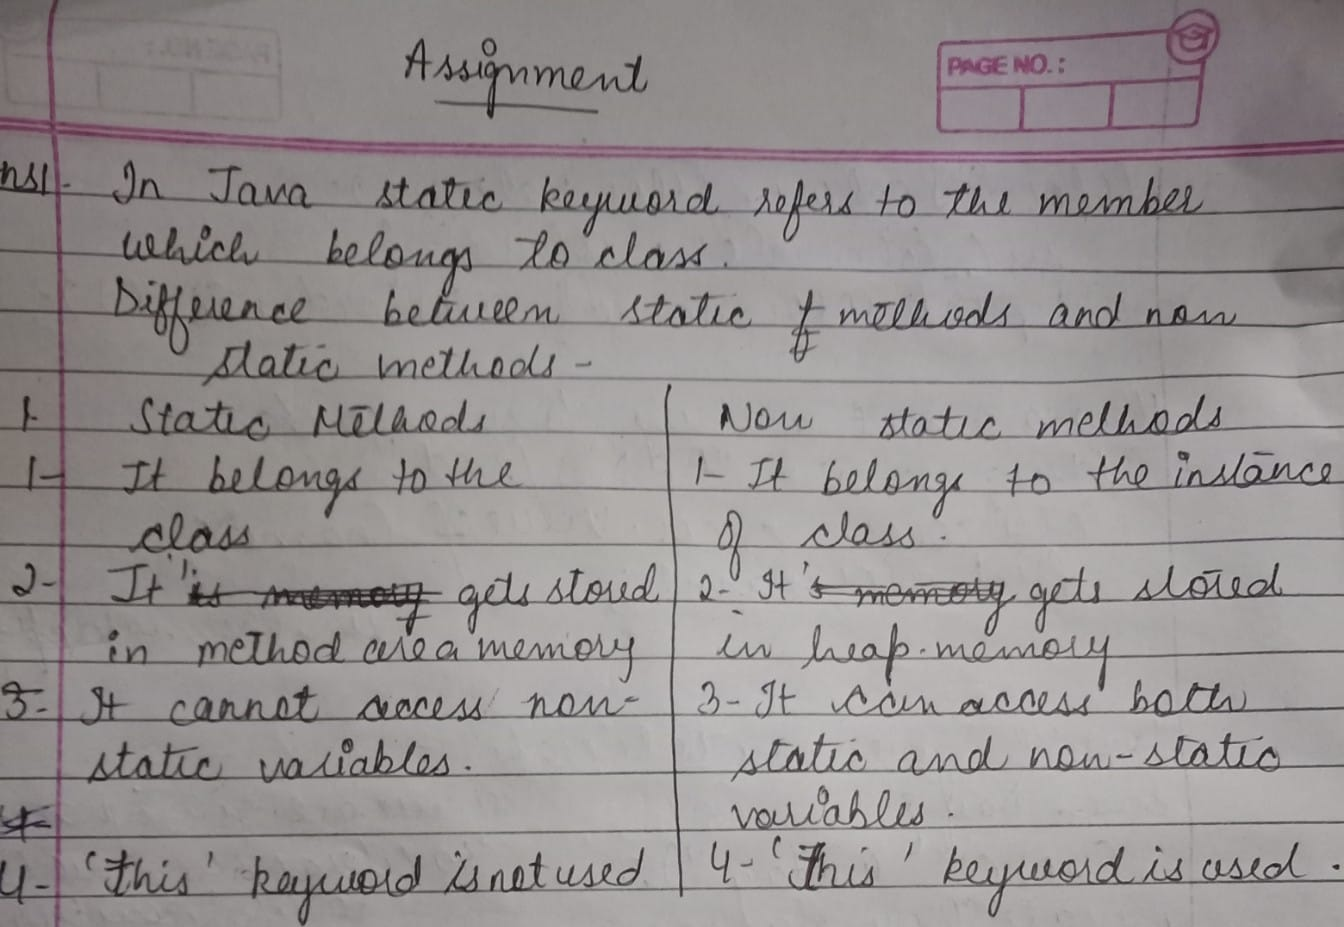 Assignment
PAGE NO.:
ns1. In Java static keyword refers to the member
which belongs to class.
Difference between static methods and non
static methods -
1. Static Methods
Non static methods
1- It belongs to the
class
1- It belongs to the instance
of class.
2- It gets stored
in method area memory
2- It gets stored
in heap memory
3- It cannot access non-
static variables.
3- It can access both
static and non-static
variables.
4- 'this' keyword is not used
4- 'This' keyword is used.